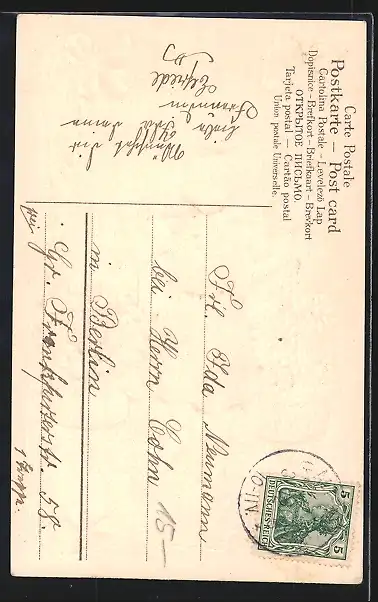 Carte Postale
Postkarte — Post card
Cartolina Postale — Levelező Lap
Dopisnice — Brefkort — Briefkaart — Brevkort
ОТКРЫТОЕ ПИСЬМО.
Tarjeta postal — Cartão postal
Union postale Universelle.
5 DEUTSCHES REICH 5
Frl. Ida Neumann
bei Herrn Cohn
in Berlin
Gr. Frankfurterstr. 58.
1 Treppe.
15—
Wünscht Dir
Ida
Freundin
Elfriede